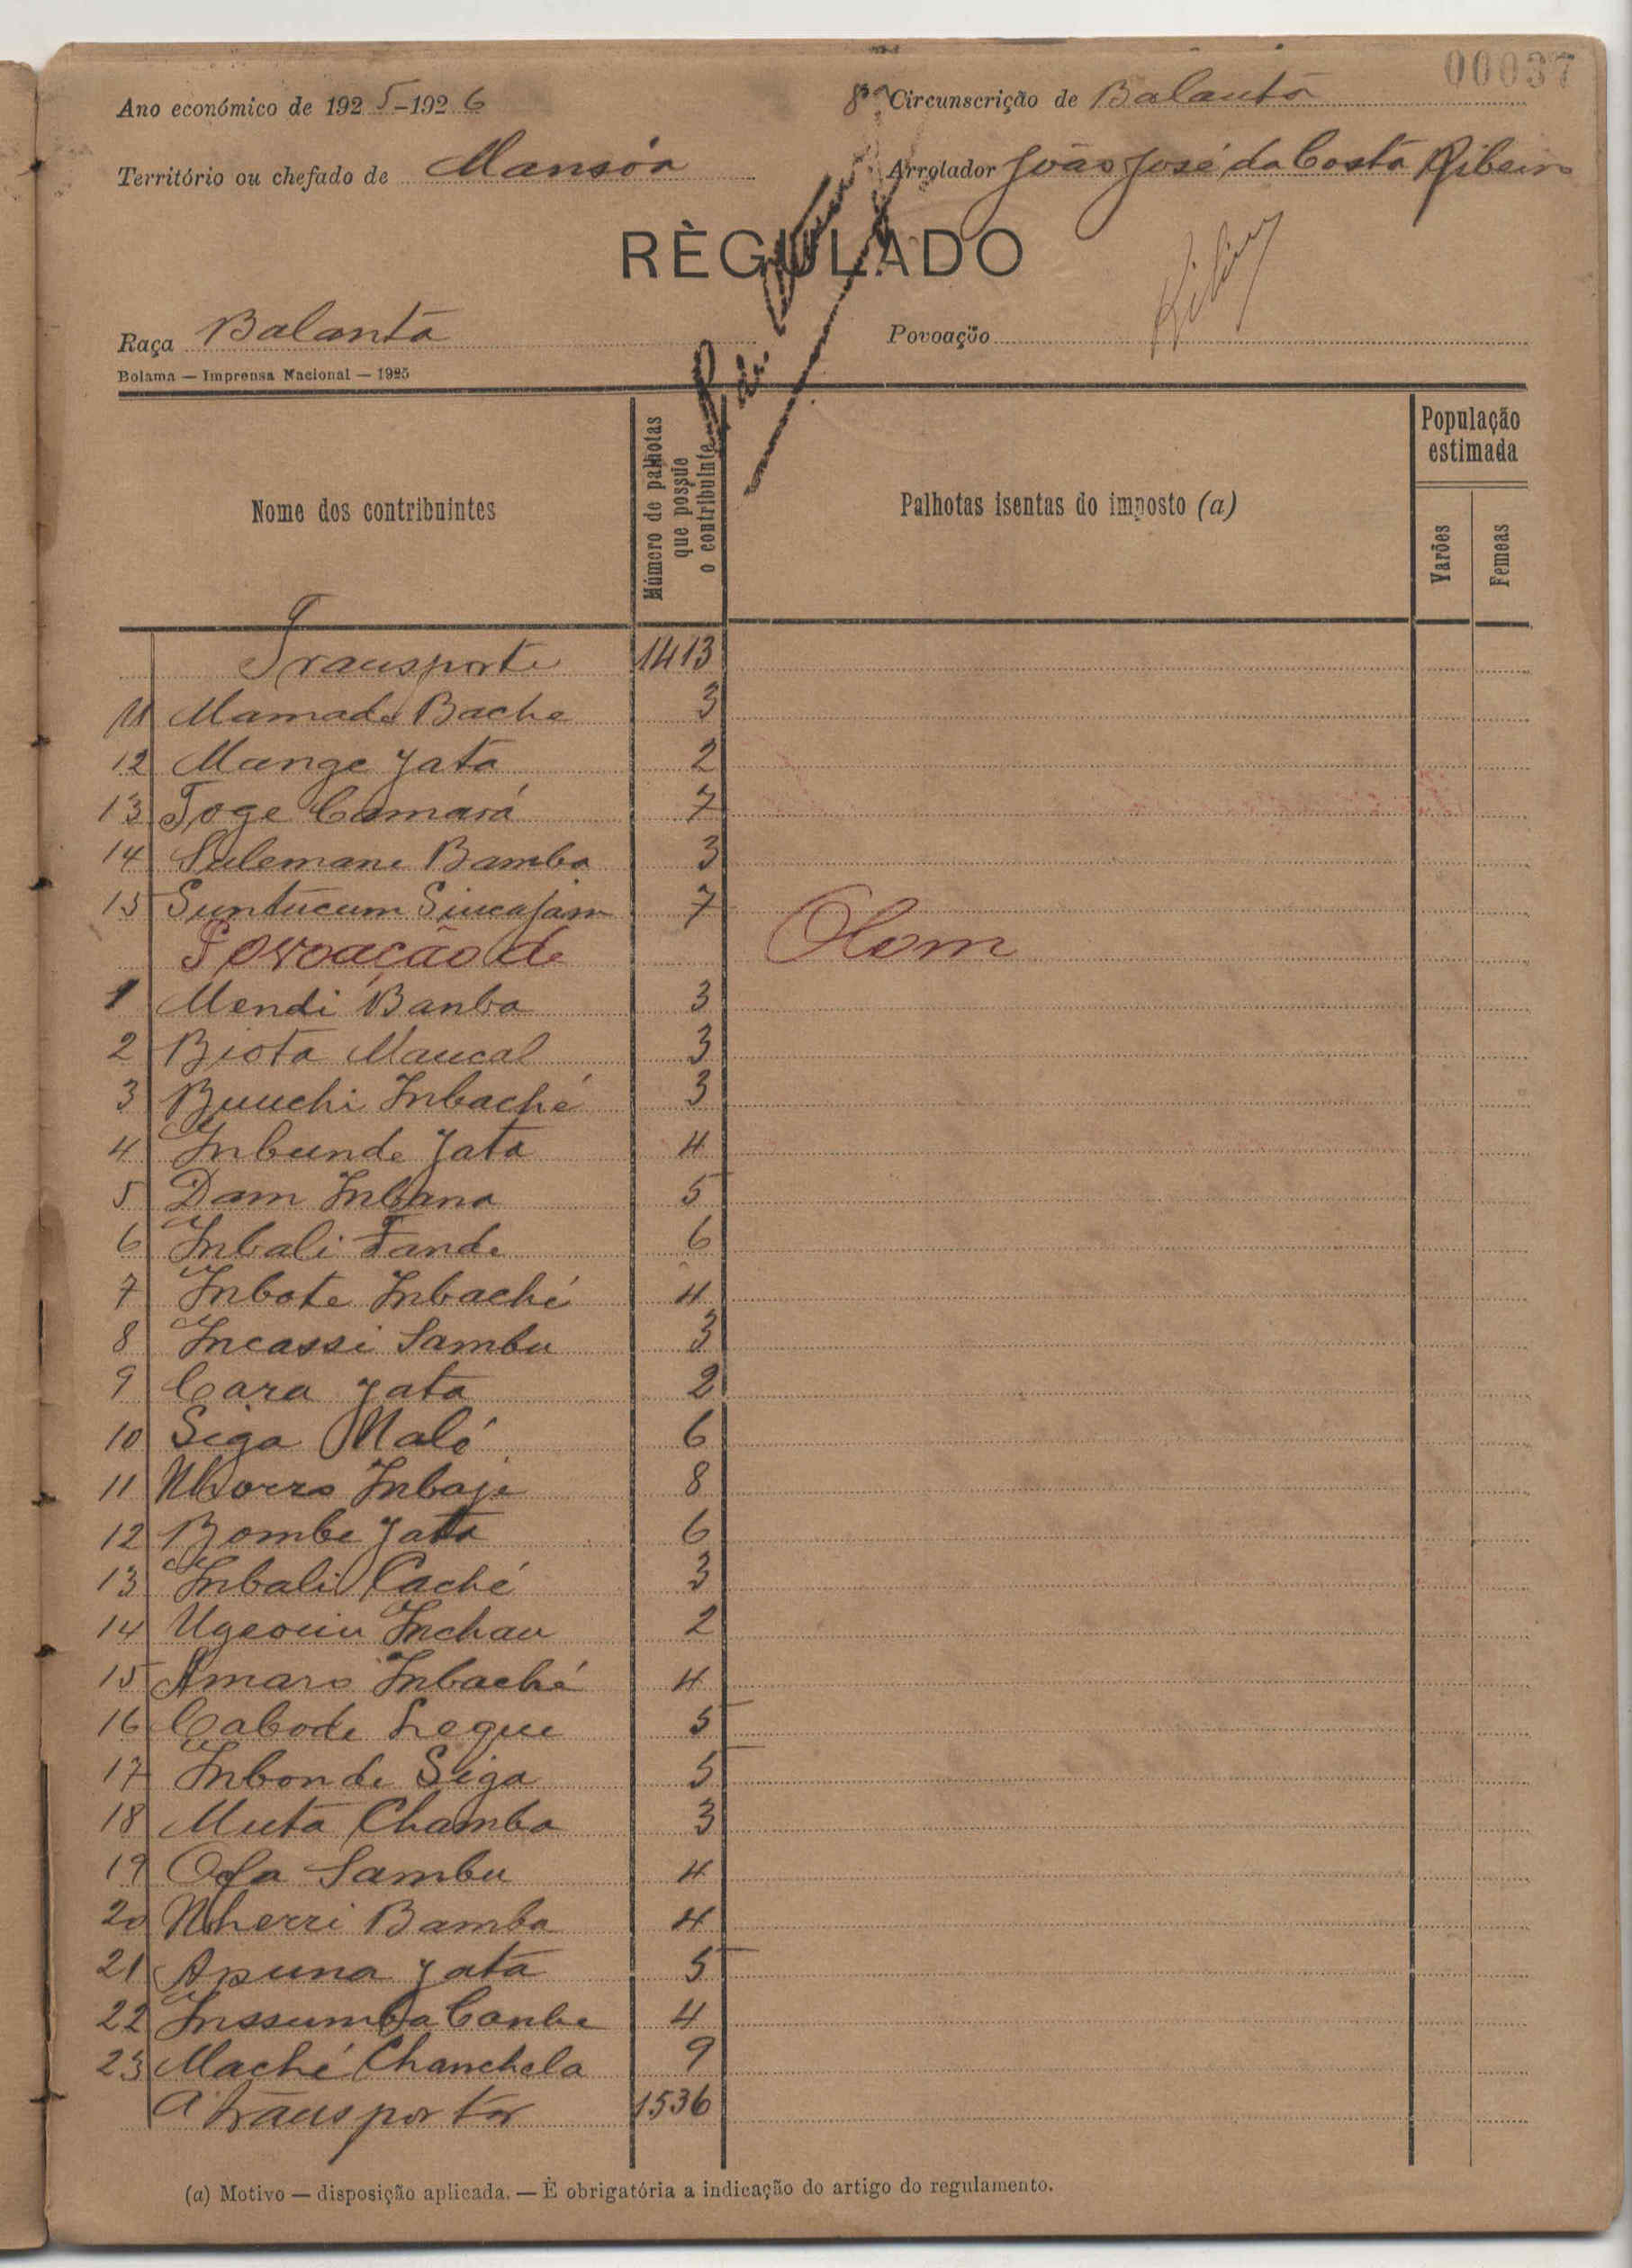 00037
Ano económico de 1925-1926
8ª Circunscrição de Balanta
Território ou chefado de Mansôa
Arrolador João José da Costa Ribeiro
RÈGULADO
Raça Balanta
Povoação
Bolama — Imprensa Nacional — 1925
Nome dos contribuintes
Número de palhotas que possue o contribuinte
Palhotas isentas do imposto (a)
População estimada
Varões
Femeas
Transporte 1413
11 Mamadu Bache 3
12 Mange Jata 2
13 Toge Camará 7
14 Sulemane Bamba 3
15 Suntucum Sincajam 7
Povoação de Olom
1 Mendi Banba 3
2 Biota Mancal 3
3 Buuchi Inbaché 3
4 Inbunde Jata 4
5 Dam Inbana 5
6 Inbali Fande 6
7 Inbote Inbaché 4
8 Incassi Sambu 3
9 Cara Jata 2
10 Siga Naló 6
11 Nhorro Inbaje 8
12 Bombe Jata 6
13 Inbali Caché 3
14 Inchau 2
15 Amaro Inbaché 4
16 Cabode Legue 5
17 Inbonde Siga 5
18 Muta Chamba 3
19 Ofa Sambu 4
20 Nherri Bamba 4
21 Apuna Jata 5
22 Inssumba Canbe 4
23 Maché Chanchela 9
A transportar 1536
(a) Motivo — disposição aplicada. — É obrigatória a indicação do artigo do regulamento.